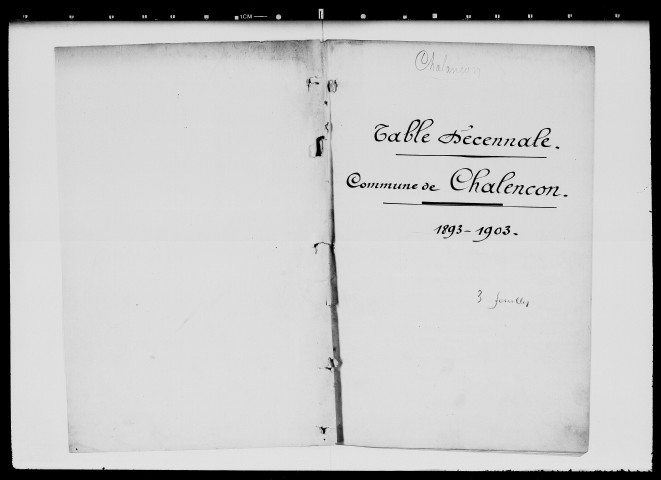 Chalancon
Table Décennale.
Commune de Chalencon.
1893-1903.
3 feuilles